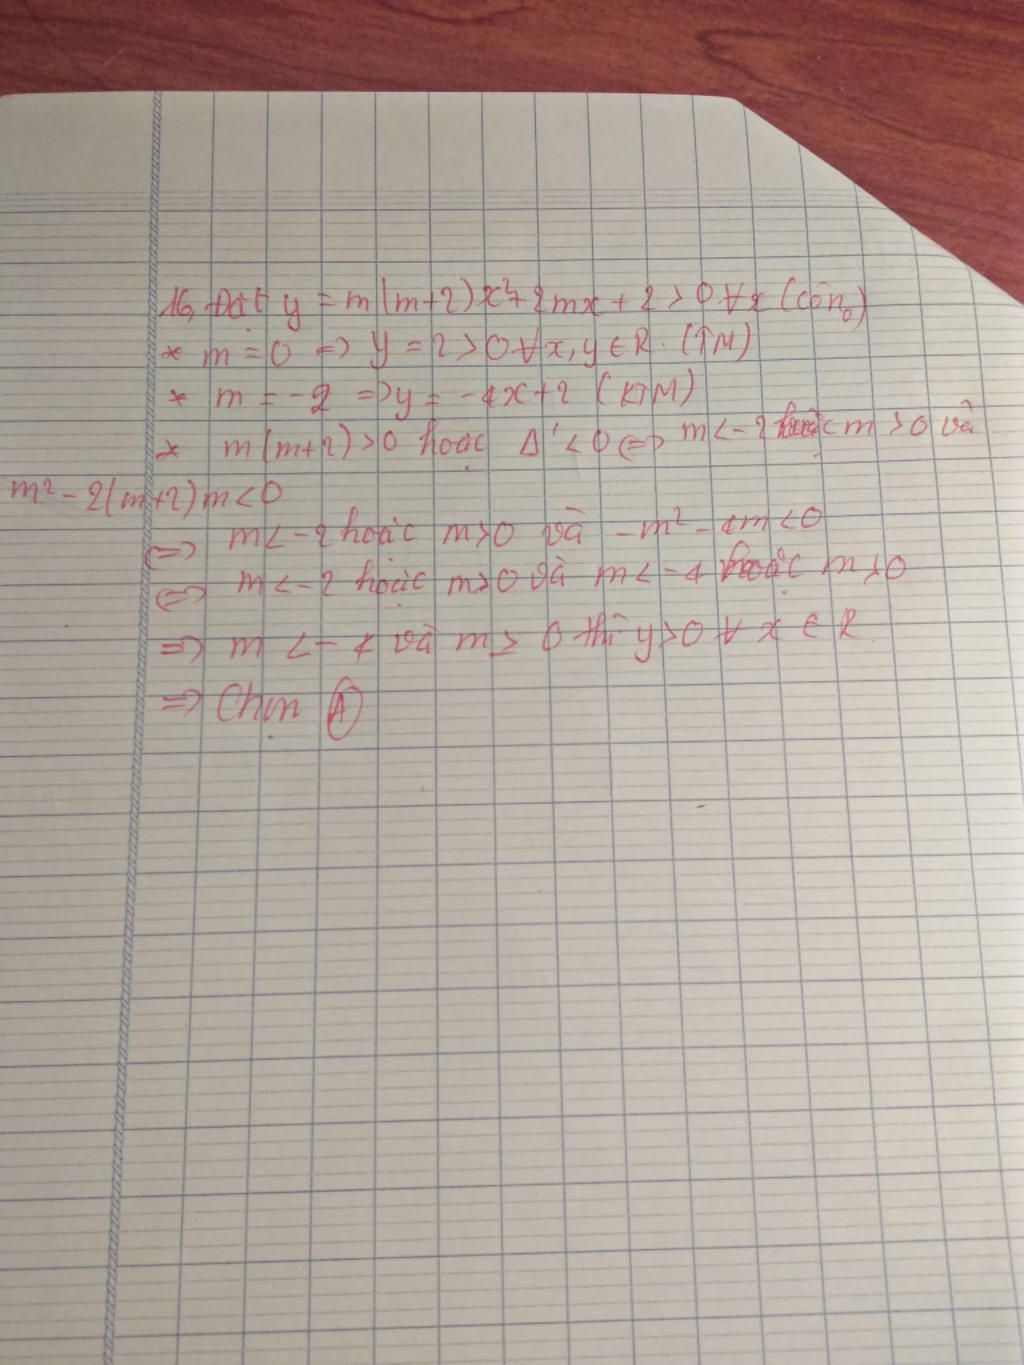 16, Đặt y = m(m+2)x²+2mx+2>0 ∀x (còn₀)
* m = 0 => y = 2 > 0 ∀x, y ∈ R. (TM)
* m = -2 => y = -4x+2 (KTM)
* m(m+2) > 0 hoặc Δ' < 0 <=> m < -2 hoặc m > 0 và
m² - 2(m+2)m < 0
<=> m < -2 hoặc m > 0 và -m² - 4m < 0
<=> m < -2 hoặc m > 0 và m < -4 hoặc m > 0
=> m < -4 và m ≥ 0 thì y > 0 ∀ x ∈ R
=> Chọn A